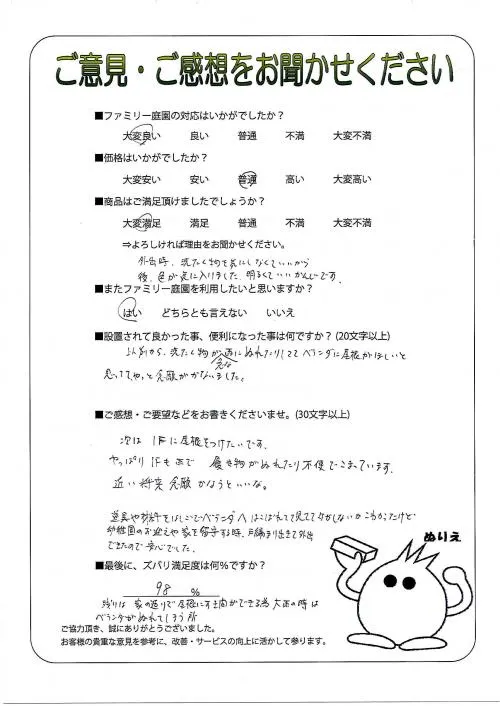 ご意見・ご感想をお聞かせください
■ファミリー庭園の対応はいかがでしたか？
大変良い　良い　普通　不満　大変不満
■価格はいかがでしたか？
大変安い　安い　普通　高い　大変高い
■商品はご満足頂けましたでしょうか？
大変満足　満足　普通　不満　大変不満
⇒よろしければ理由をお聞かせください。
外出時、洗たく物を気にしなくていいから
後、色が気に入りました。明るくていいかんじです。
■またファミリー庭園を利用したいと思いますか？
はい　どちらとも言えない　いいえ
■設置されて良かった事、便利になった事は何ですか？(20文字以上)
以前から、洗たく物が雨にぬれたりしてて ベランダに屋根がほしいと
思っててやっと念願がかないました。
■ご感想・ご要望などをお書きくださいませ。(30文字以上)
次は 1Fに屋根をつけたいです。
やっぱり1Fも雨で 履き物がぬれたり不便でこまっています。
近い将来 念願 かなうといいな。
道具や材料をはしごでベランダへはこばれて
幼稚園のお迎えや家を留守する時、戸締まり出きて外出
できたので安心でした。
ぬりえ
■最後に、ズバリ満足度は何％ですか？
98 ％
残りは 家の造りで屋根にすき間ができる為 大雨の時は
ベランダがぬれてしまう所
ご協力頂き、誠にありがとうございました。
お客様の貴重な意見を参考に、改善・サービスの向上に活かして参ります。